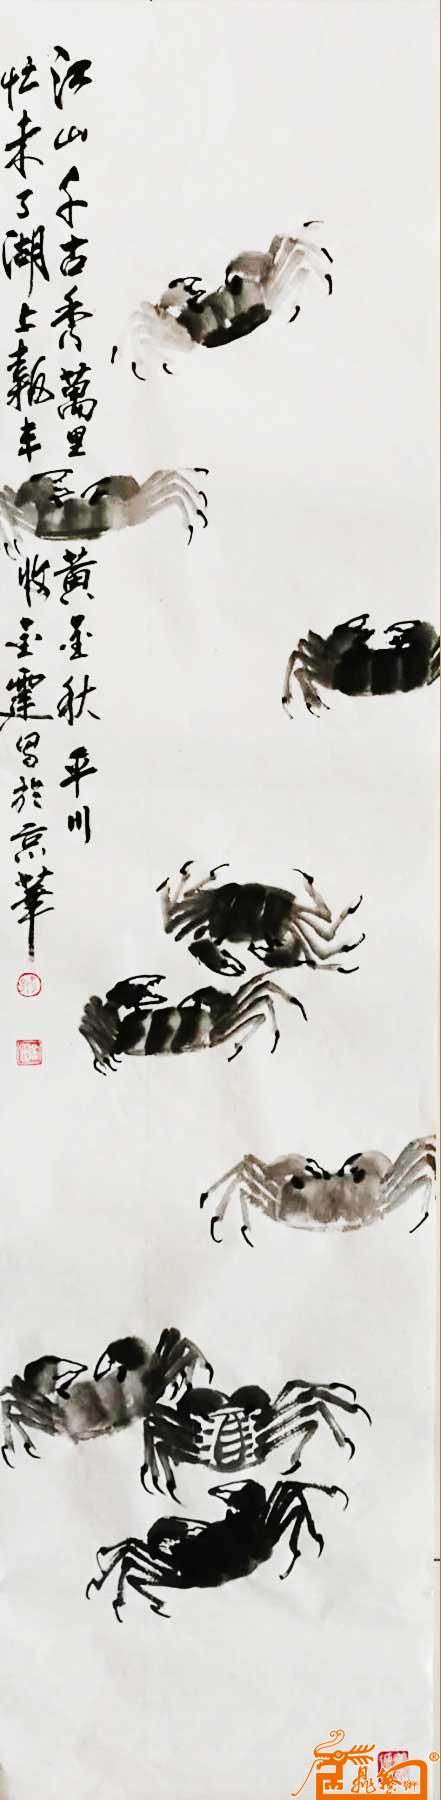 江山千古秀萬里黃金秋平川
忙未了湖上報丰收金霆写於京華